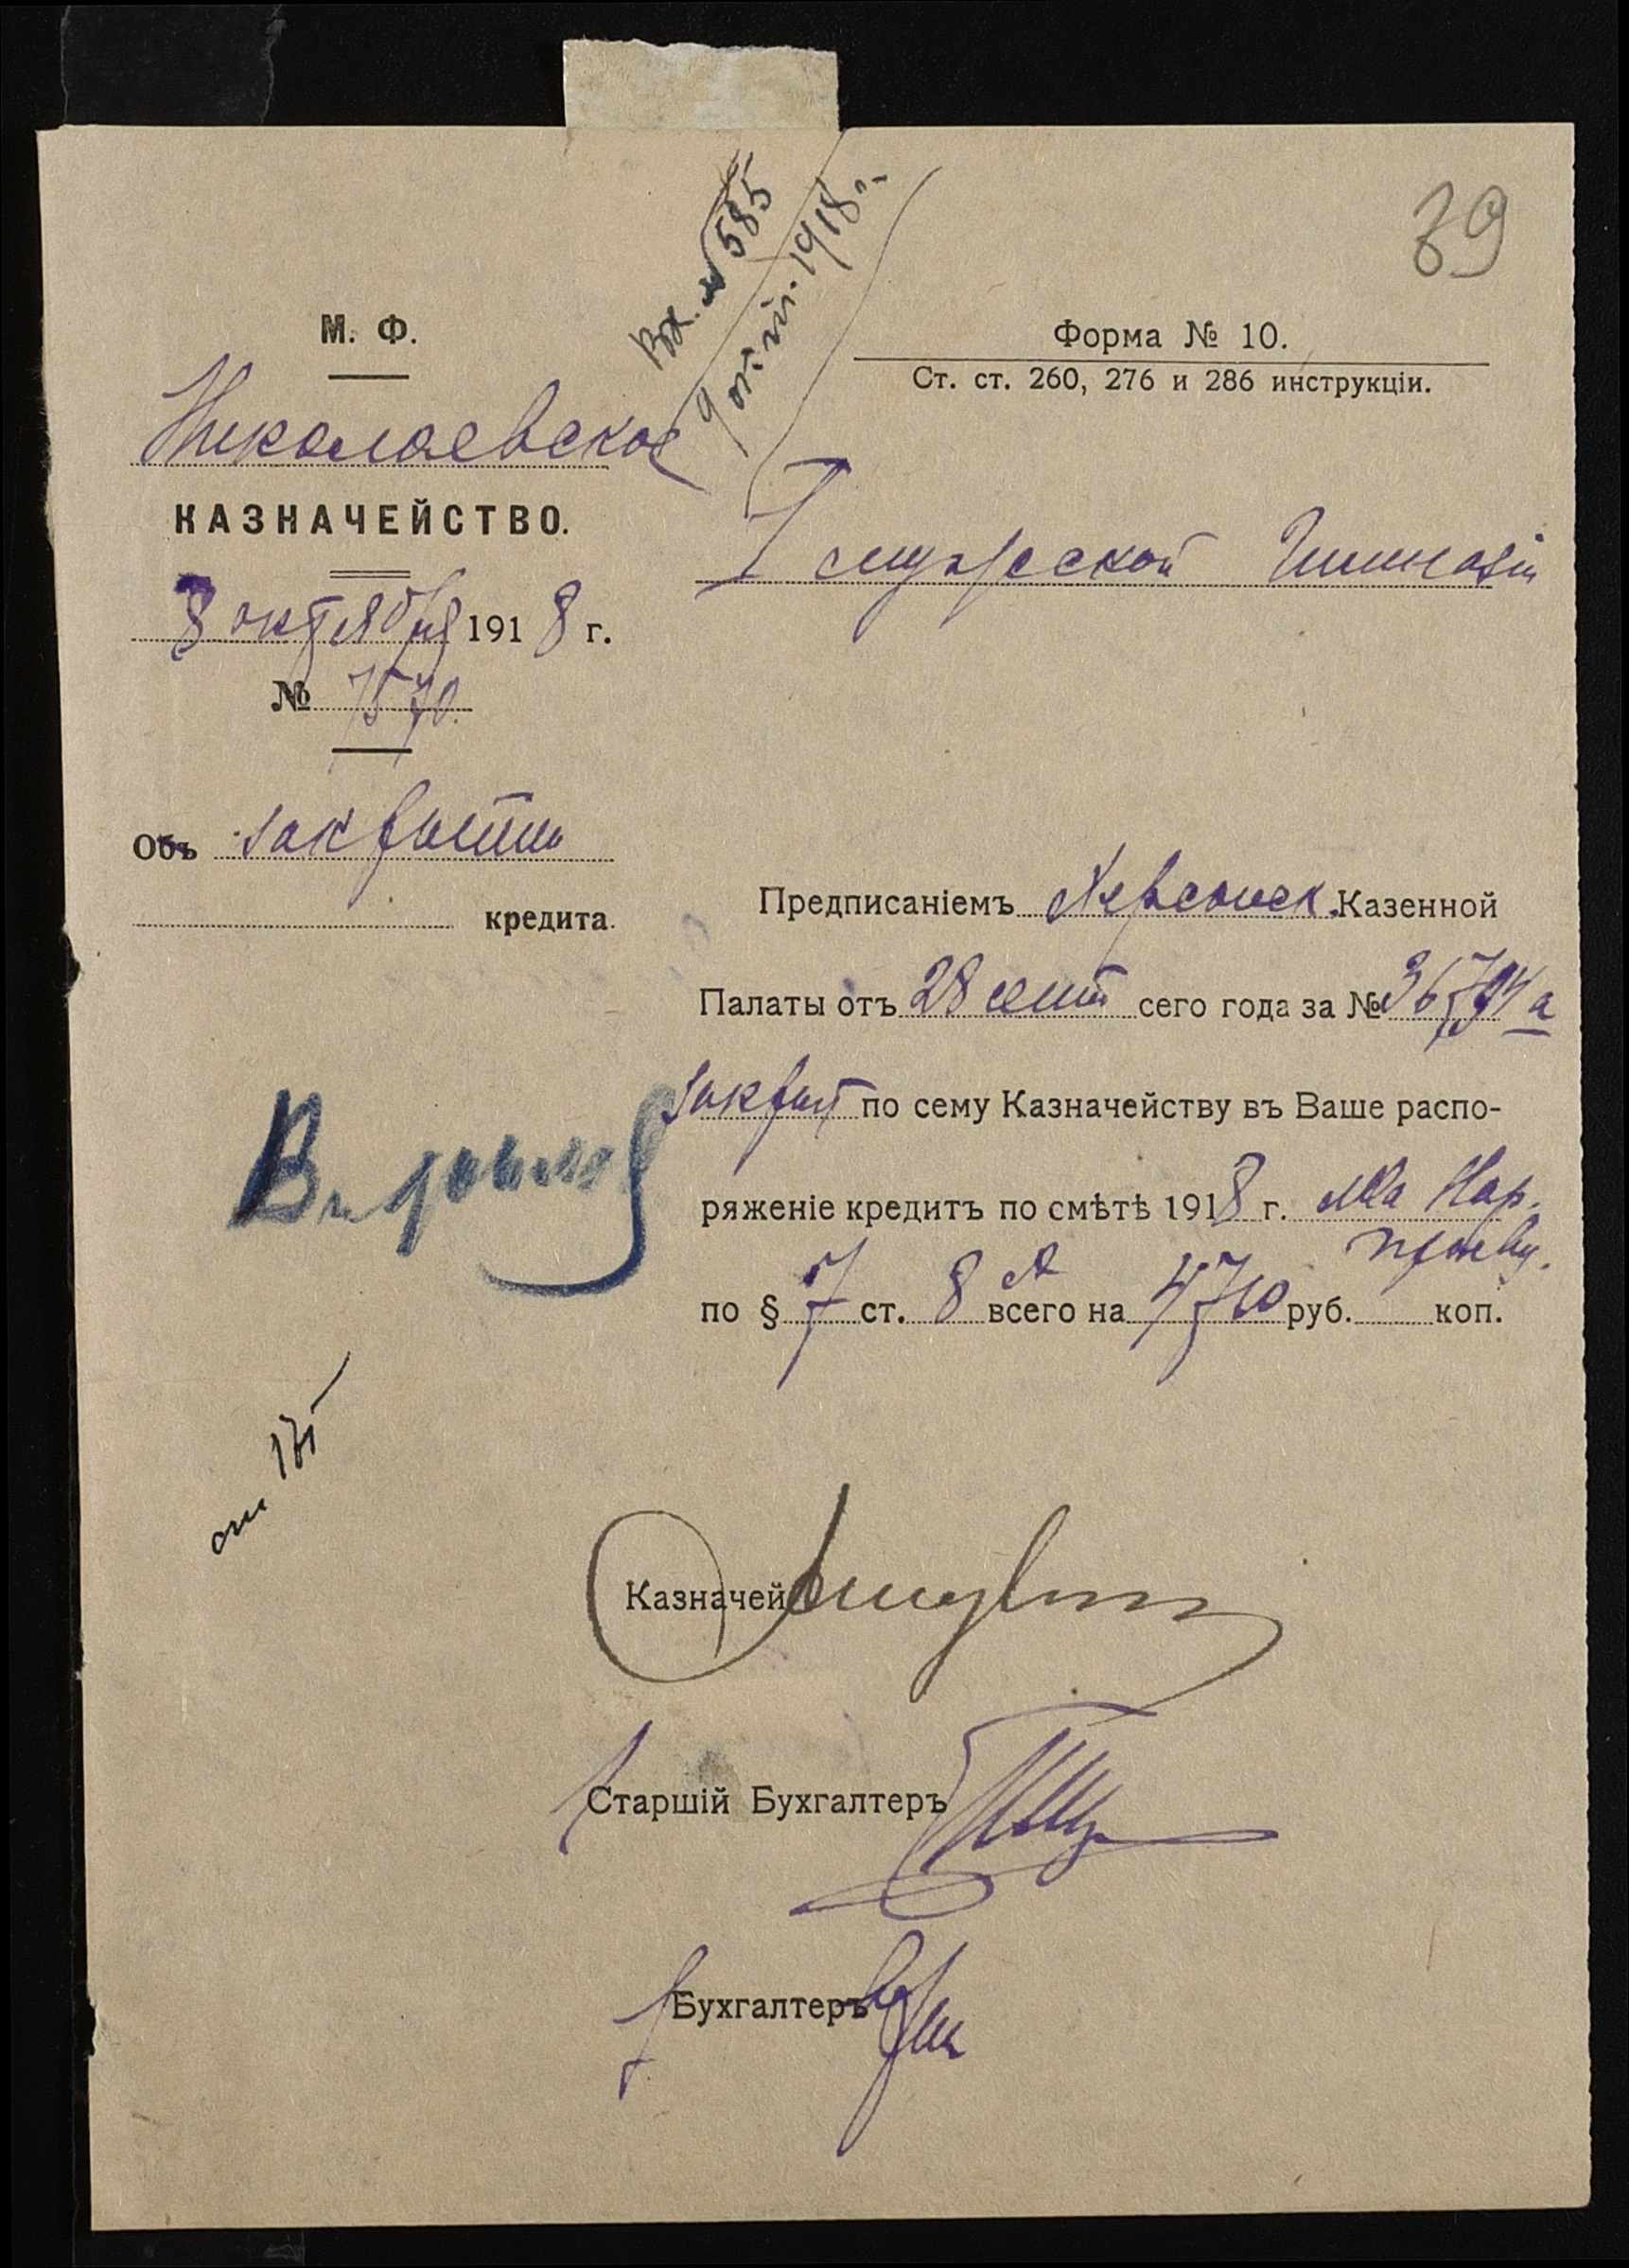 39
Вх. № 585
9 окт. 1918 г.
М. Ф.
Николаевское
КАЗНАЧЕЙСТВО.
8 октября 1918 г.
№ 7570.
Объ закрытии
кредита.
Форма № 10.
Ст. ст. 260, 276 и 286 инструкціи.
I мужской Гимназіи
Предписаніемъ Херсонск. Казенной
Палаты отъ 28 сент сего года за № 36794 а
закрыт по сему Казначейству въ Ваше распо-
ряженіе кредитъ по смѣтѣ 1918 г. М-ва Нар.
просвѣ.
по § 7 ст. 8 А всего на 4710 руб. коп.
Казначей
Старшій Бухгалтеръ
Бухгалтеръ